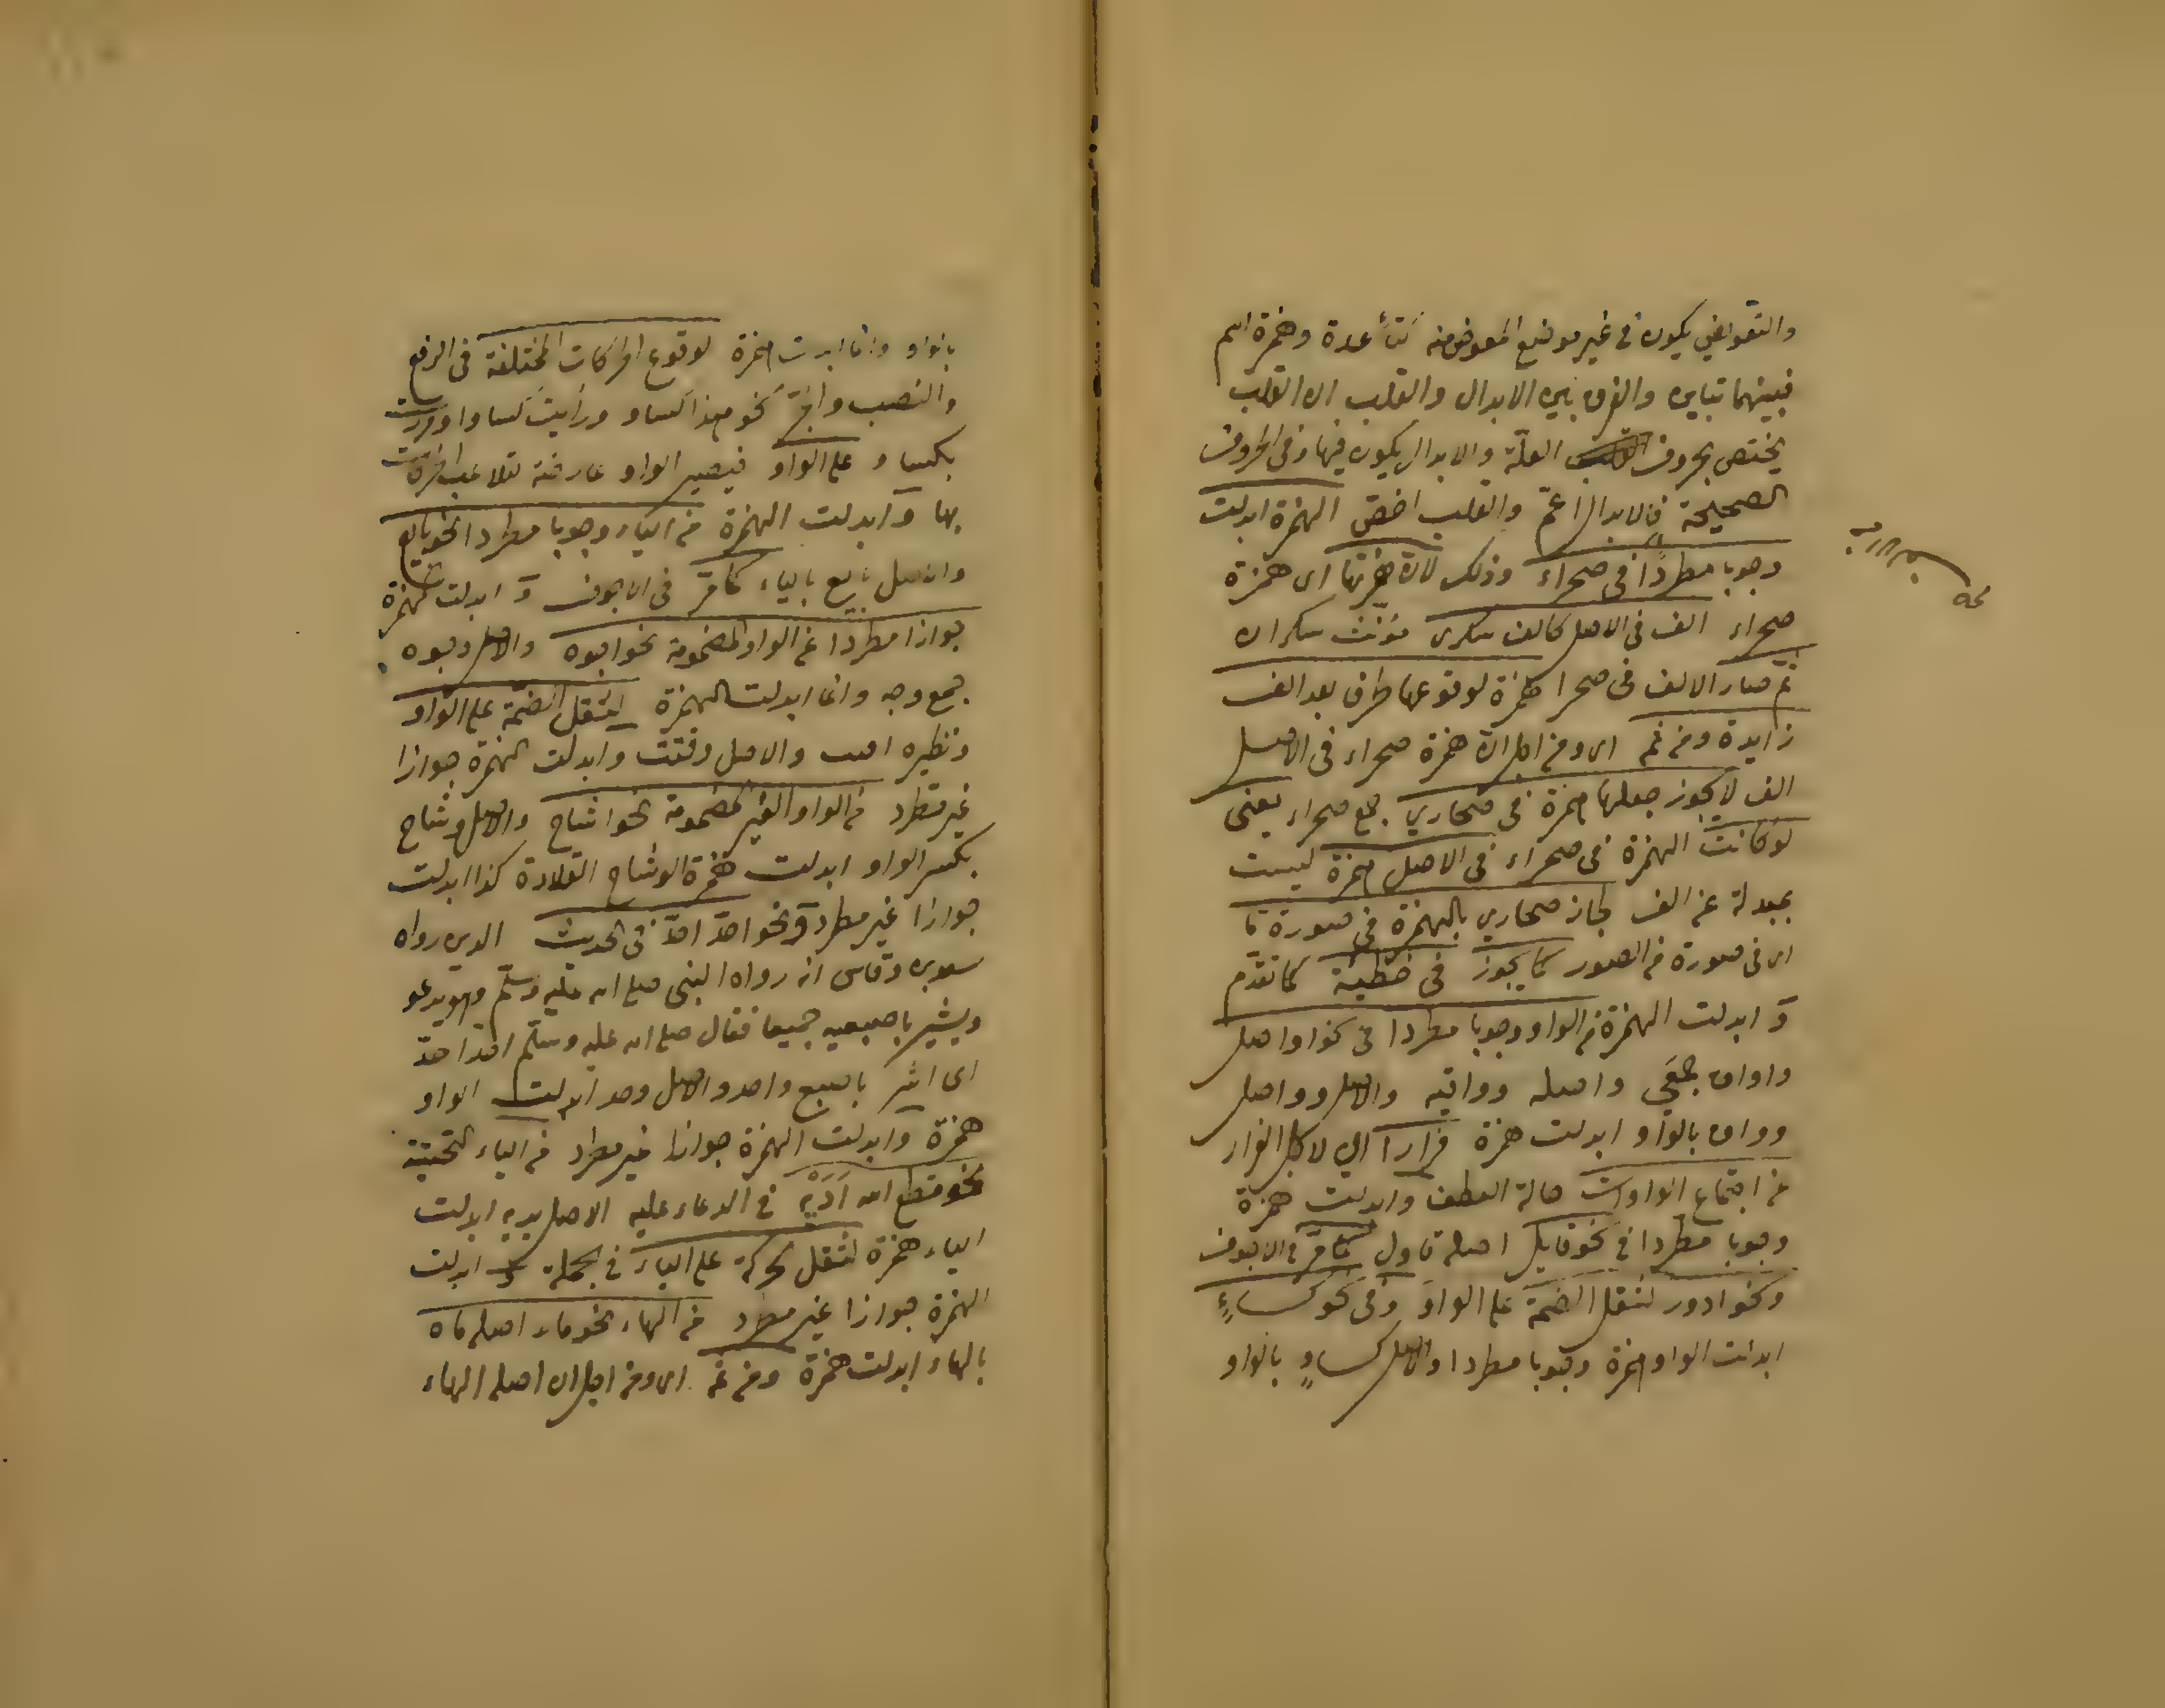 والتعويض يكون في غير موضع المعوض منه كتاء عدة وهمزة اسم
فبينهما تباين والفرق بين الابدال والقلب ان القلب
يختص بحروف العلّة والابدال يكون فيها وفي الحروف
الصحيحة فالابدال اعمّ والقلب اخصّ الهمزة ابدلت
وجوبا مطردًا في صحراء وذلك لانّ همزتها اى همزة
صحراء الف في الاصل كالف سكرى مؤنث سكران
ثم صار الالف في صحرا همزة لوقوعها طرفا بعد الف
زايدة ومن ثم اى ومن اجل انّ همزة صحراء في الاصل
الف لا يجوز جعلها همزة في صحاري جمع صحراء يعنى
لو كانت الهمزة في صحراء في الاصل همزة ليست
بمبدلة عن الف لجاز صحاري بالهمزة في صورة ما
اى في صورة من الصور كما يجوز في خطيئة كما تقدم
و ابدلت الهمزة من الواو وجوبا مطردا في نحو اواصل
واواق جمعي واصله وواقيه والاصل وواصل
ووواق بالواو ابدلت همزة فرارا اى لاجل الفرار
عن اجتماع الواوات حالة العطف وابدلت همزة
وجوبا مطردا في نحو قايل اصله قاول كما مرّ في الاجوف
ونحو ادور لثقل الضمة على الواو وفي نحو كساءٍ
ابدلت الواو همزة وجوبا مطردا والاصل كساوٍ بالواو
بالواو وانما ابدلت همزة لوقوع الحركات المختلفة في الرفع
والنصب والجرّ نحو هذا كساو ورأيت كساوا ومررت
بكساو على الواو فيصير الواو
بها وابدلت الهمزة من الياء وجوبا مطردا نحو بايع
والاصل بايع بالياء كما مرّ في الاجوف و ابدلت الهمزة
جوازا مطردا عن الواو المضمومة نحو اجوه والاصل وجوه
جمع وجه وانما ابدلت الهمزة لثقل الضمّة على الواو
ونظيره اقتت والاصل وقتت وابدلت الهمزة جوازا
غير مطرد من الواو الغير المضمومة نحو اشاح والاصل وشاح
بكسر الواو ابدلت همزة الوشاح القلادة كذا ابدلت
جوازا غير مطرد في نحو احّد احّد في الحديث الذى رواه
سعد بن وقاص انه رواه النبى صلى الله عليه وسلم وهو يدعو
ويشير باصبعيه جميعا فقال صلى الله عليه وسلّم احّد احّد
اى اشر باصبع واحد والاصل وحد ابدلت الواو
همزة وابدلت الهمزة جوازا غير مطرد من الياء التحتية
نحو قطع الله اَدَيْهِ في الدعاء عليه الاصل يديه ابدلت
الياء همزة لثقل الحركة على الياء في الجملة و ابدلت
الهمزة جوازا غير مطرد من الهاء نحو ماء اصله ماه
بالهاء ابدلت همزة ومن ثم اى ومن اجل ان اصله الهاء